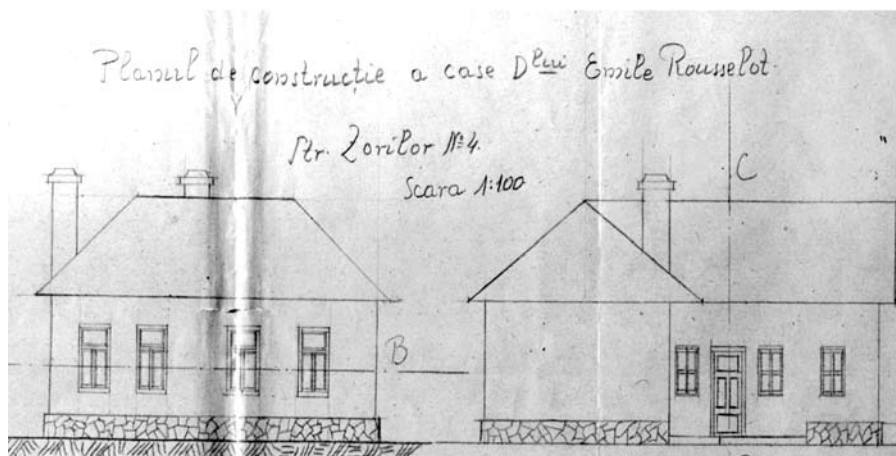 Planul de construcție a case Dlui Emile Rousselot.
Str. Zorilor № 4.
Scara 1:100
C
B